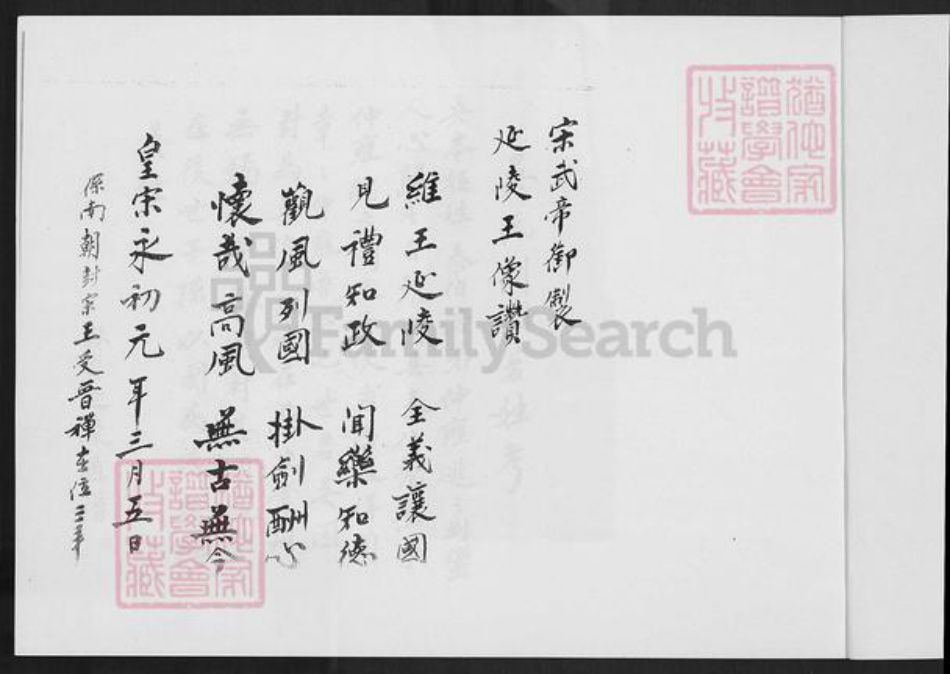 宋武帝御製
延陵王像讚
維王延陵 全義讓國
見禮知政 聞樂知德
觀風列國 掛劍酬心
懷哉高風 無古無今
皇宋永初元年三月五日
係南朝封宗王受晉禪在位三年
譜學會
收藏
譜學會
收藏
FamilySearch